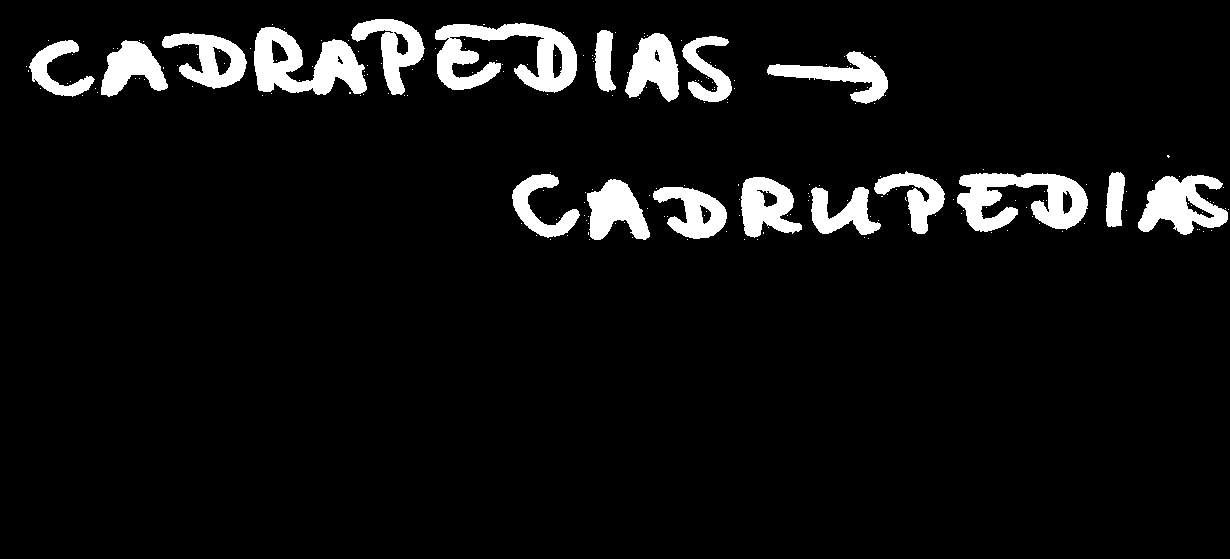 CADRAPEDIAS →
CADRUPEDIAS